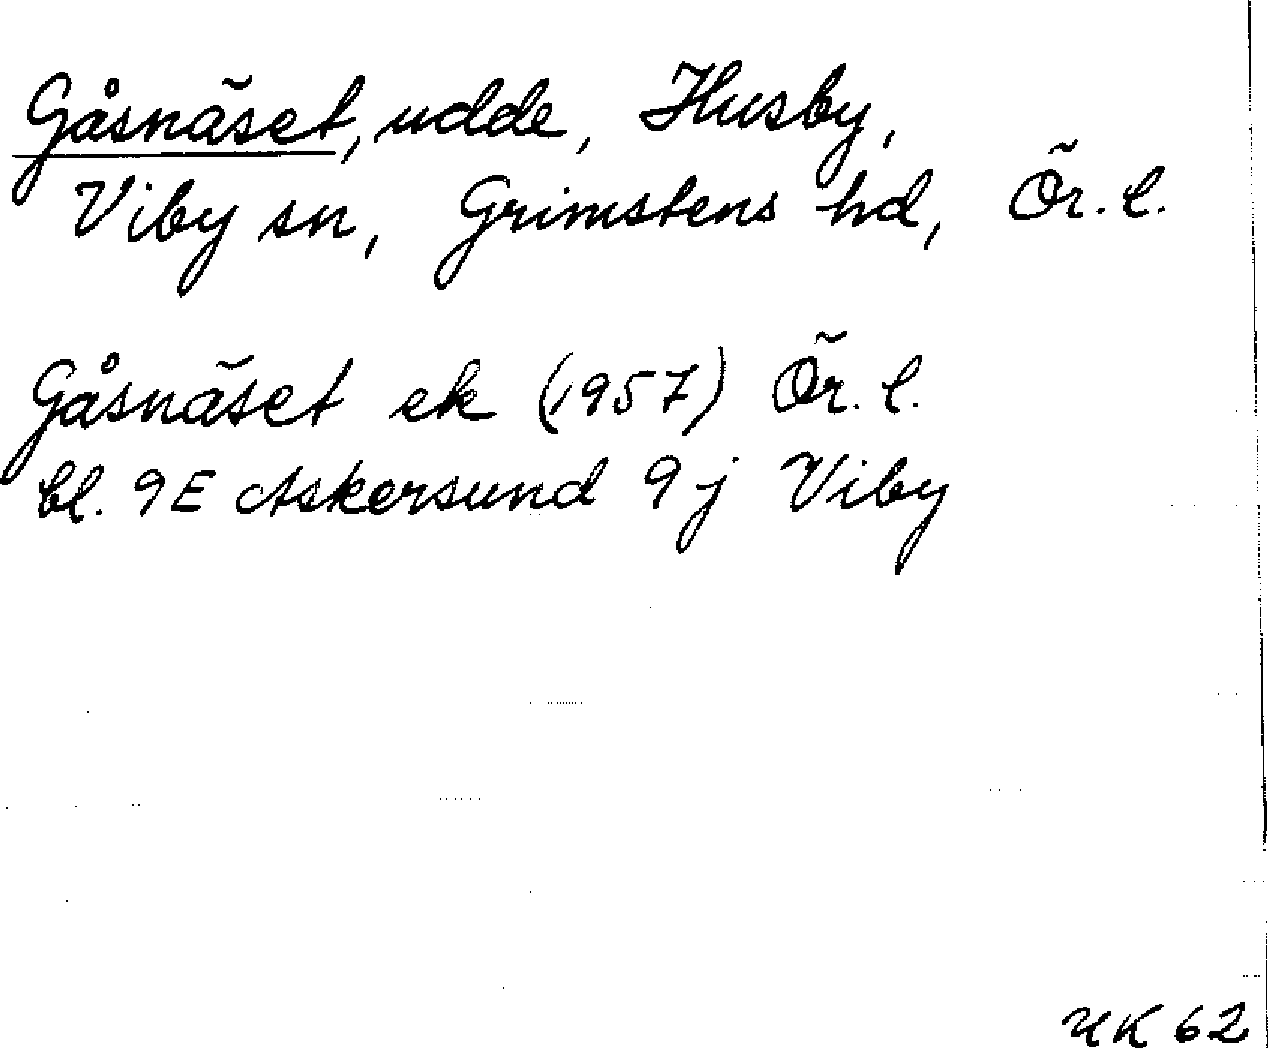 Gåsnäset, udde, Husby,
Viby sn, Grimstens hd, Ör. l.
Gåsnäset ek (1957) Ör. l.
bl. 9E Askersund 9j Viby
HK 62